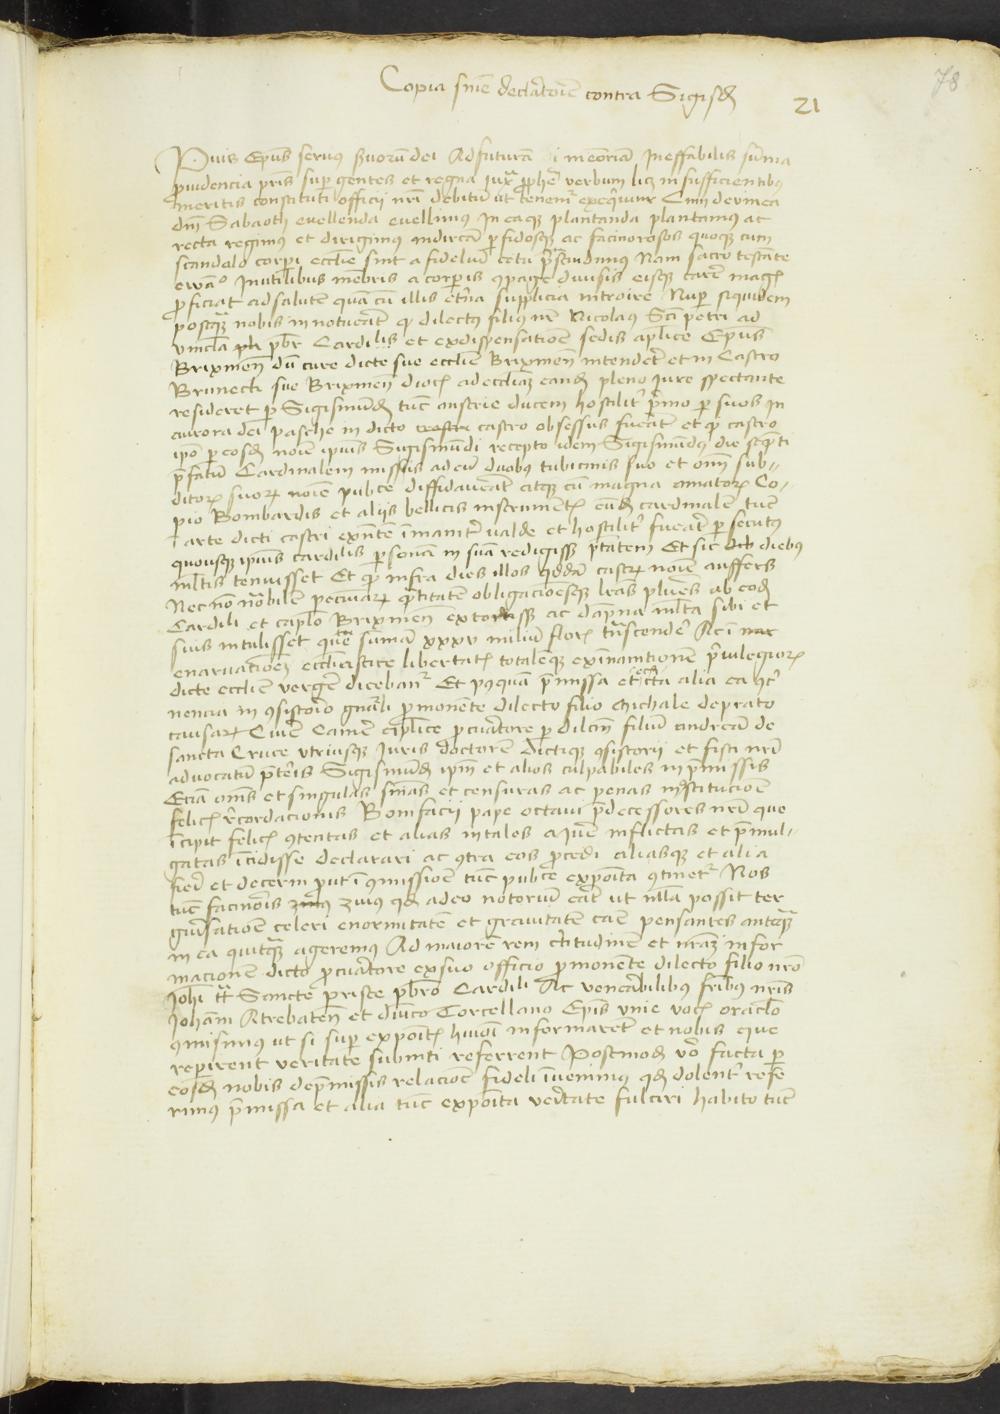 Copia snie declatorie contra Sigisd
78
21
Puis Epus seruus seruoru dei Ad futura i memoria Ineffabilis suma
puidencia pris sup gentes et regna iux pphe verbum lic insufficientibus
meritis constituti officii nri debitu ut tenem exequimr Cum de vinea
dni Sabaoth euellenda euellimus In eaqs plantanda plantamus ac
recta regimus et dirigimus indirca pfidosqs ac facinorosos quoqs cum
scandalo corpi ecclie sint a fideliu cetu pscindimus Nam sacro testate
ewao Inutilibus mebris a corpis compage diuisis eisqs carere mag
pficiat ad salute qua cu illis etna supplicia introire Nup siquidem
postqua nobis innotuerat qd dilectus filius nr Nicolaus Sci petri ad
vincla pbr Cardilis et ex dispensatioe sedis aplice Epus
Brixinen du cure dicte sue ecclie Brixinen intendet et in Castro
Brunech sue Brixinen dioc ad eccliaz eand pleno iure spectante
resideret p Sigismud tuc austrie ducem hostilit pmo p suos in
aurora diei pasche in dicto castro obsessus fuerat et qd castro
ipo p eosd noie ipius Sigismundi recepto idem Sigismudus die sequti
pfatu Cardinalem missis ad eu duobus tubicinis suo et omi sub-
ditor suor noie pubce diffidauerat atqs cu magna armator Co-
pio Bombardis et aliis bellicis instrument eud cardinale tuc
i arte dicti castri exnte inanit valde et hostilit fuerat psecutus
quousqs ipius cardilis psona in sua redigiss ptatem Et sic diebus
mltis tenuisset Et qd infra dies illos qdda castr noie auffers
Nec no notabile pecuniar qntitate obligacioesqs lras plures ab eod
Cardili et caplo Brixinen extorsiss ac dapna mlta sibi et
suis intulisset que suma xxxv miliu flor tnscender Ac i
eneruatioez ecclesiastice libertat totaleqs exinanitione priuilegior
dicte ecclie verger dicebant Et pquam pmissa et cta alia ea
nencia in consistorio gnali pmonente dilecto filio Michale de prato
causar Ciuie Camere aplice pcuratore p dilcm filiu Andrea de
sancta Cruce vtriusqs iuris doctore dictiqs consistorii et fisci nri
aduocatu pteris Sigismud ipm et alios culpabiles in pmissis
Ecia omes et singulas snias et censuras ac penas in constitucioe
felic recordacionis Bonifacii pape octaui pdecessores nri que
icipit felic contentas et alias in tales a iure inflictas et pmul-
gatas icidisse declarari ac contra eos pcedi aliasqs et alia
fieri et decerni put i commissioe tuc pubce exposita continet Nos
tuc facinoris 3uius qd adeo notoriu erat ut nlla possit ter
giuersatioe celari enormitate et grauitate eaie pensantes anteqs
in ea quitqs ageremus Ad maiore rem certitudine et nraz infor
macionem dicto pcuratore ex suo officio pmonente dilecto filio nro
Johi tt Sancte prisce pbro Cardili Ac venerabilibus fribus nris
Johani Atrebaten et dnico Torcellano Epis viue voc oraclo
comisimus ut si sup exposit huiusi informaret et nobis que
reperirent veritate subniti referrent Postmod vo facta p
eosd nobis de pmissis relacioe fideli inuenimus qd dolent refe
rimus pmissa et alia tuc exposita veritate fulciri habito tuc